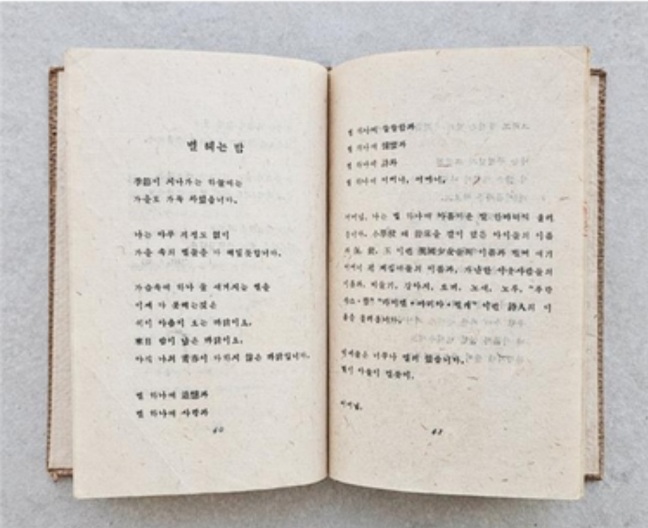 별 헤는 밤
季節이 지나가는 하늘에는
가을로 가득 차 있습니다.
나는 아무 걱정도 없이
가을 속의 별들을 다 헤일듯합니다.
가슴속에 하나 둘 새겨지는 별을
이제 다 못헤는것은
쉬이 아츰이 오는 까닭이오,
來日 밤이 남은 까닭이오,
아직 나의 靑春이 다하지 않은 까닭입니다.
별 하나에 追憶과
별 하나에 사랑과
40
별 하나에 쓸쓸함과
별 하나에 憧憬과
별 하나에 詩와
별 하나에 어머니, 어머니,
어머님, 나는 별 하나에 아름다운 말 한마디식 불러
봅니다. 小學校 때 冊床을 같이 했든 아이들의 이름
과 佩, 鏡, 玉 이런 異國少女들의 이름과 벌써 애기
어머니 된 계집애들의 이름과, 가난한 이웃사람들의
이름과, 비둘기, 강아지, 토끼, 노새, 노루, "푸랑
시스・쨤" "라이넬・마리아・릴케" 이런 詩人의 이
름을 불러봅니다.
이네들은 너무나 멀리 있습니다.
별이 아슬이 멀듯이,
어머님,